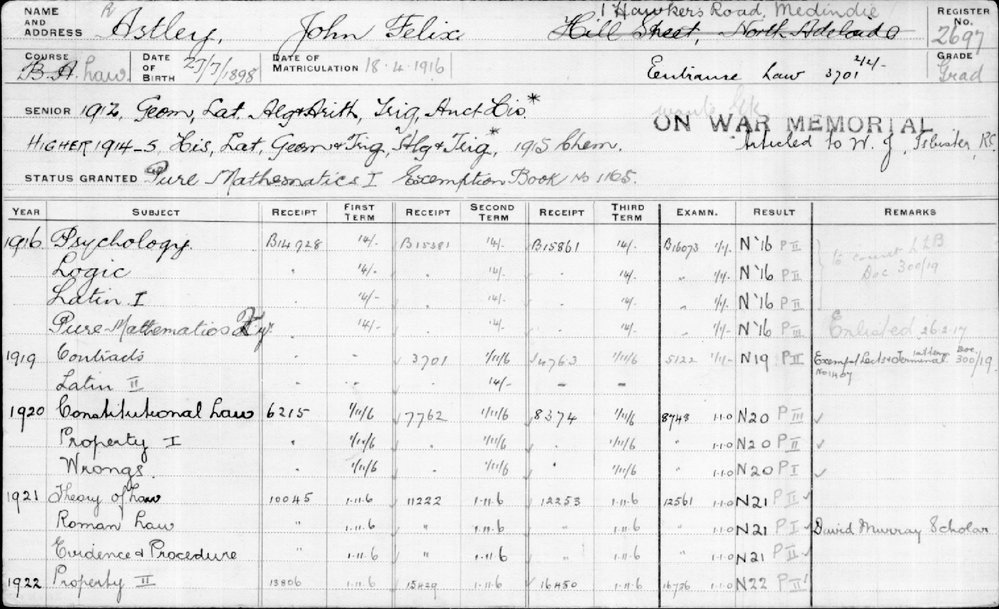 NAME AND ADDRESS Astley, John Felix 1 Hawkers Road, Medindie REGISTER No. 2697
Hill Street, North Adelaide
COURSE B.A. Law. DATE OF BIRTH 27/7/1898 DATE OF MATRICULATION 18.4.1916 Entrance Law 3701 21/- GRADE Grad
SENIOR 1912, Geom, Lat, Alg & Arith, Trig, Anct His*
ON WAR MEMORIAL
HIGHER 1914-5, His, Lat, Geom & Trig, Alg & Trig,* 1915 Chem. Articled to W. J. Isbister, K.C.
STATUS GRANTED Pure Mathematics I Exemption Book No 1165.
YEAR SUBJECT RECEIPT FIRST TERM RECEIPT SECOND TERM RECEIPT THIRD TERM EXAMN. RESULT REMARKS
1916 Psychology B14928 14/- B15381 14/- B15861 14/- B16073 1/1/- N'16 P II to count LLB
Logic " 14/- " 14/- " 14/- " 1/1/- N'16 P II Doc 300/19
Latin I " 14/- " 14/- " 14/- " 1/1/- N'16 P II
Pure Mathematics 14/- " 14/- 14/- " 1/1/- N'16 P III Enlisted 26.2.17
1919 Contracts 3701 1/11/6 4763 1/11/6 5122 1/1/- N19 P II Exemp Lects & Terminal Doc. 300/19.
Latin II " 14/- - - No 1407
1920 Constitutional Law 6215 1/11/6 7762 1/11/6 8374 1/11/6 8748 1.1.0 N20 P III ✓
Property I " 1/11/6 " 1/11/6 " 1/11/6 " 1.1.0 N20 P II ✓
Wrongs. " 1/11/6 " 1/11/6 " 1/11/6 " 1.1.0 N20 P I ✓
1921 Theory of Law 10045 1.11.6 11222 1.11.6 12253 1.11.6 12561 1.1.0 N21 P II ✓
Roman Law " 1.11.6 " 1.11.6 " 1.11.6 " 1.1.0 N21 P I ✓ David Murray Scholar
Evidence & Procedure " 1.11.6 " 1.11.6 " 1.11.6 " 1.1.0 N21 P II ✓
1922 Property II 13806 1.11.6 15429 1.11.6 16450 1.11.6 16756 1.1.0 N22 P II